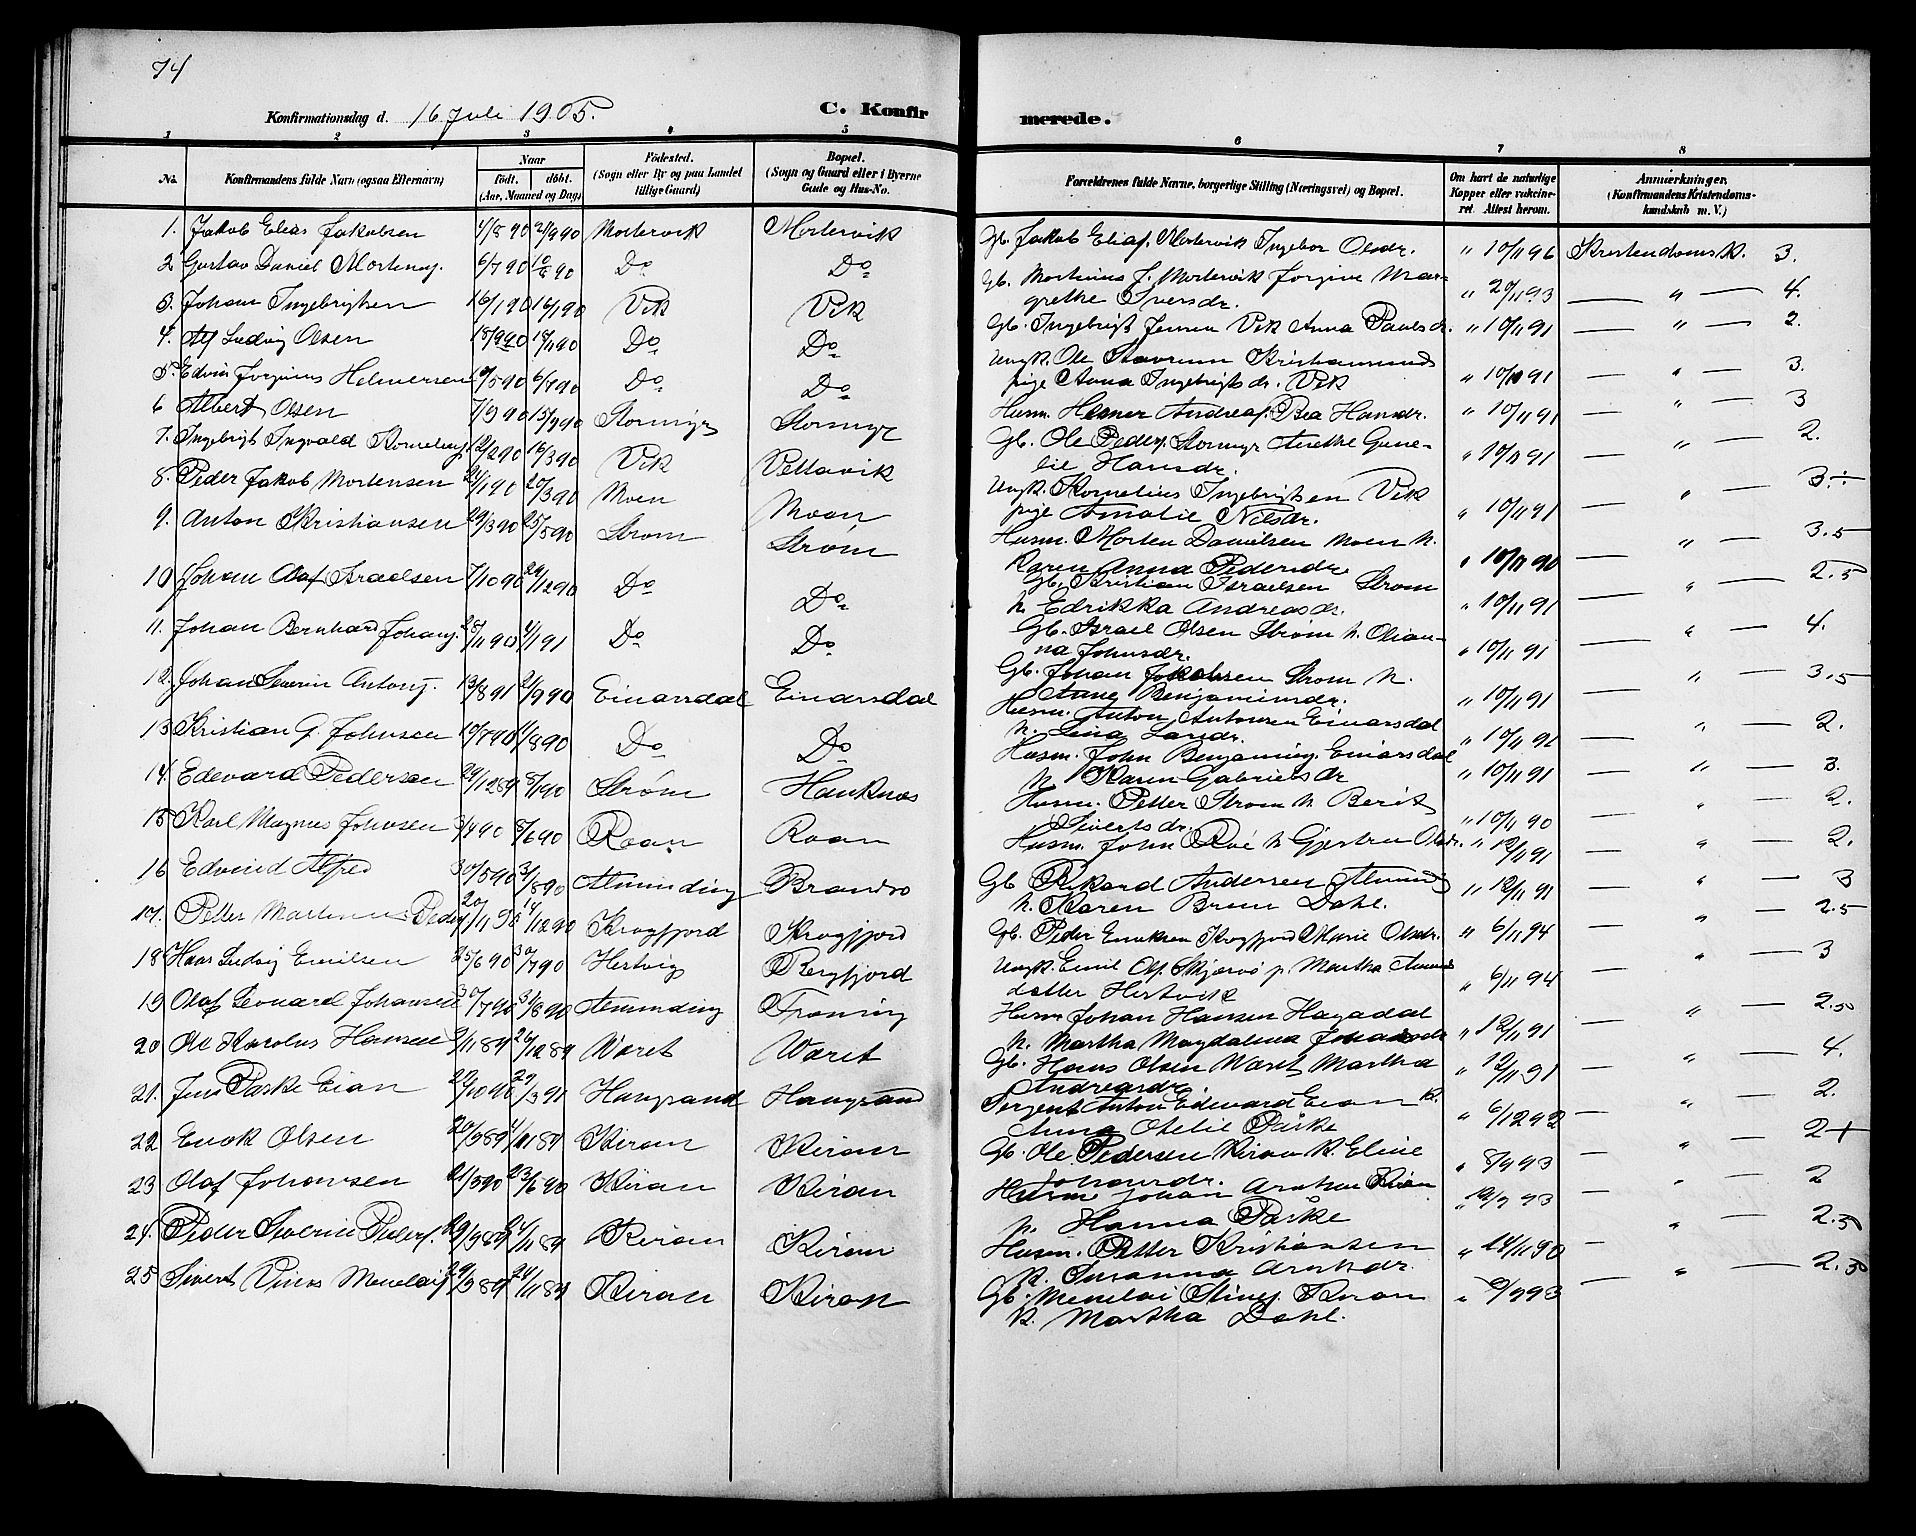 74
Konfirmationsdag d. 16 Juli 1905. C. Konfirmerede.
1 2 3 4 5 6 7 8
No. Konfirmandens fulde Navn (ogsaa Efternavn) Naar født. døbt. (Aar, Maaned og Dag) Födested. (Sogn eller By og paa Landet tillige Gaard) Bopæl. (Sogn og Gaard eller i Byerne Gade og Hus-No. Forældrenes fulde Navne, borgerlige Stilling (Næringsvei) og Bopæl. Om havt de naturlige Kopper eller vakcineret. Attest herom. Anmærkninger. (Konfirmandens Kristendomskundskab m. V.)
1. Jakob Elias Jakobsen 4/8 90 21/9 90 Mortervik Mortervik Gb. Jakob Elias. Mortervik Ingebor Olsdr. " 10/11 96 Kristendomsk. 3.
2 Gustav Daniel Mortens. 6/7 90 10/8 90 Do Do Gb. Martinus J. Mortervik Jorgine Mar-
grethe Iversdr. " 20/11 93 " 4.
3. Johan Ingebrigtsen 16/1 90 16/1 90 Vik Vik Gb. Ingebrigt Jensen Vik Anna Paulsdr. " 10/11 91 " 2.
4. Alf Ludvig Olsen 18/9 90 19/11 90 Do Do Ungk. Ole Stavrum Kristiansund
pige Anna Ingebrigtsdr. Vik " 10/10 91 " 3.
5. Edvin Jorginus Helmersen 10/5 90 6/7 90 Do Do Husm. Helmer Andreas. Rea Hansdr. " 10/11 91 " 3
6 Albert Olsen 7/9 90 15/9 90 Stormyr Stormyr Gb. Ole Peders. Stormyr Anethe Gune-
lie Hansdr. " 10/11 91 " 2.
7. Ingebrigt Ingvald Kornelius. 12/2 90 16/3 90 Vik Vettavik Ungk. Kornelius Ingebrigtsen Vik
pige Amalie Nilsdr. " 10/11 91 " 3 ÷
8. Peder Jakob Mortensen 24/1 90 20/3 90 Moen Moan Husm. Morten Danielsen Moen h.
Karen Anna Pedersdr. " 10/11 90 " 3.5
9. Anton Kristiansen 29/3 90 25/5 90 Strøm Strøm Gb. Kristian Israelsen Strøm
h. Edrikka Andreasdr. " 10/11 91 " 2.5
10 Johan Olaf Israelsen 7/10 90 29/12 90 Do Do Gb. Israel Olsen Strøm h. Olian-
na Johnsdr. " 10/11 91 " 4.
11. Johan Bernhard Johans. 25/11 90 4/1 91 Do Do Gb. Johan Jakobsen Strøm h.
Anne Benjaminsdr. " 10/11 91 " 3.5
12. Johan Severin Antons. 13/8 91 21/9 90 Einarsdal Einarsdal Husm. Anton Antonsen Einarsdal
h. Lina Larsdr. " 10/11 91 " 2.
13 Kristian G. Johnsen 10/7 90 11/8 90 Do Do Husm. John Benjamins. Einarsdal
h. Karen Gabrielsdr " 10/11 91 " 3.
14. Edevard Pedersen 29/12 89 8/1 90 Strøm Hauknes Husm. Petter Strøm h Berit
Sivertsdr. " 10/11 90 " 2.
15. Karl Magnus Johnsen 3/4 90 8/6 90 Roan Roan Husm. John Roé h Gjertru Olsdr. " 12/11 91 " 2.
16 Edvind Alfred 30/5 90 31/8 90 Alminding Brandsø Gb Rikard Andersen Almind
h. Karen Bruun Dahl. " 12/11 91 " 3
17. Petter Martinus Peders 20/11 90 14/12 90 Krogfjord Krogfjord Gb. Peder Eriksen Krogfjord Marie Olsdr. " 6/11 94 " 2.5
18 Hans Ludvig Emilsen 25/6 90 30/7 90 Hertvig Bergfjord Ungk. Emil Ols. Skjervø p. Martha Amunds
datter Hertvik " 6/11 94 " 3
19 Olaf Leonard Johansen 30/7 90 31/8 90 Alminding Froning Husm Johan Hansen Hagadal
h. Martha Magdalena Johansdr " 12/11 91 " 2.50
20 Ole Karolus Hansen 9/11 89 26/12 89 Været Været Gb. Hans Olsen Været Martha
Andreasdr. " 12/11 91 " 4.
21. Jens Påske Eian 20/10 90 29/3 91 Haugsand Haugsand Sergent Anton Edevard Eian h.
Anna Otelie Påske " 6/12 92 " 2.
22 Enok Olsen 20/9 89 4/11 89 Kiran Kiran Gb. Ole Pedersen Kiran h. Eline
Johansdr. " 8/9 93 " 2 +
23 Olaf Johansen 21/5 90 23/6 90 Kiran Kiran Husm Johan Arntsen Kiran
h. Hanna Påske " 12/9 93 " 2
24. Peder Severin Peders. 29/9 89 24/11 89 Kiran Kiran Husm. Petter Kristiansen
h. Susanna Arntsdr. " 14/11 90 " 2.50
25 Sivert Vinas Menelais 29/9 89 24/11 89 Kiran Kiran Gb. Menelai Stines. Kiran
h. Martha Dahl. " 6/9 93 " 2.50